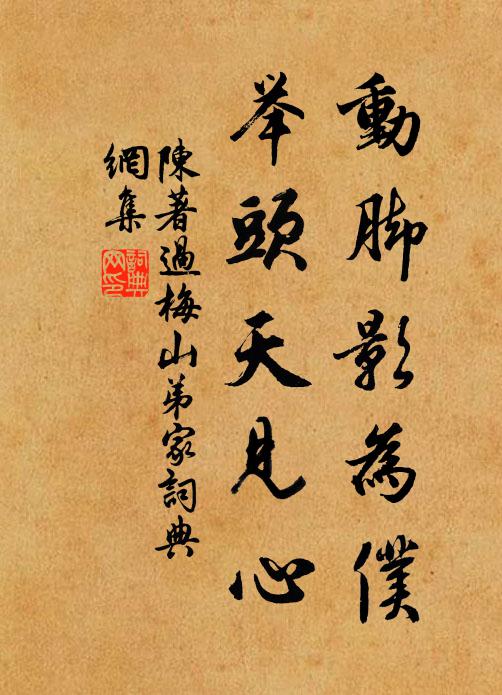 動脚影為僕
举頭天見心
陳著過梅山弟家詞典
網集
詞典
网印